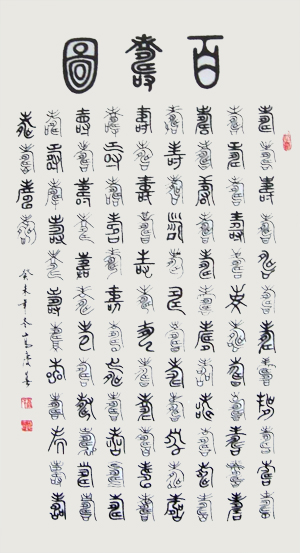 百壽圖
壽壽壽壽壽壽壽壽壽壽壽壽
壽壽壽壽壽壽壽壽壽壽壽壽
壽壽壽壽壽壽壽壽壽壽壽壽
壽壽壽壽壽壽壽壽壽壽壽壽
壽壽壽壽壽壽壽壽壽壽壽壽
壽壽壽壽壽壽壽壽壽壽壽壽
壽壽壽壽壽壽壽壽壽壽壽壽
壽壽壽壽壽壽壽壽壽壽壽壽
壽壽壽壽
癸未年冬